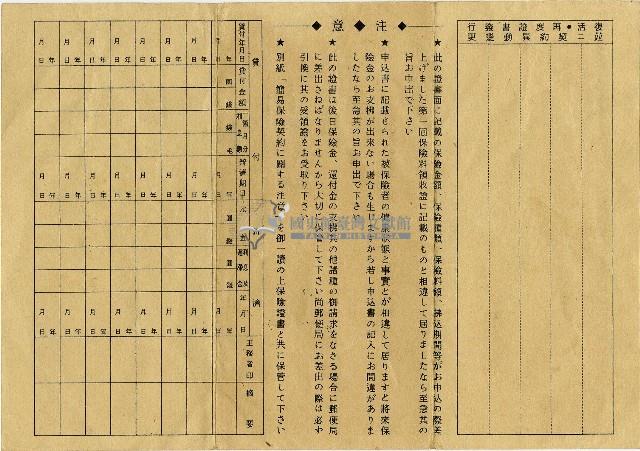 復活・再度證書發行
延二契約異動變更
注意
★此の證書面に記載の保險金額、保險種類、保險料額、拂込期間等がお申込の際差
上げました第一回保險料領收證に記載のものと相違して居りましたなら至急其の
旨お申出で下さい
★申込書に記載せられた被保險者の健康狀態と事實とが相違して居りますと將來保
險金のお支拂が出來ない場合も生じますから若し申込書の記入にお間違がありま
したなら至急其の旨お申出で下さい
★此の證書は後日保險金、還付金の支拂其の他諸種の御請求をなさる場合に郵便局
に差出さねばなりませんから大切に保管して下さい尚郵便局にお差出の際は必ず
引換に其の受領證をお受取り下さい
★別紙「簡易保險契約に關する注意」を御一讀の上保險證書と共に保管して下さい
國史館臺灣文獻館
TAIWAN HISTORICA
貸付
濟
貸付年月日
貸付金額
年月日
主務者印
摘要
年 月 日